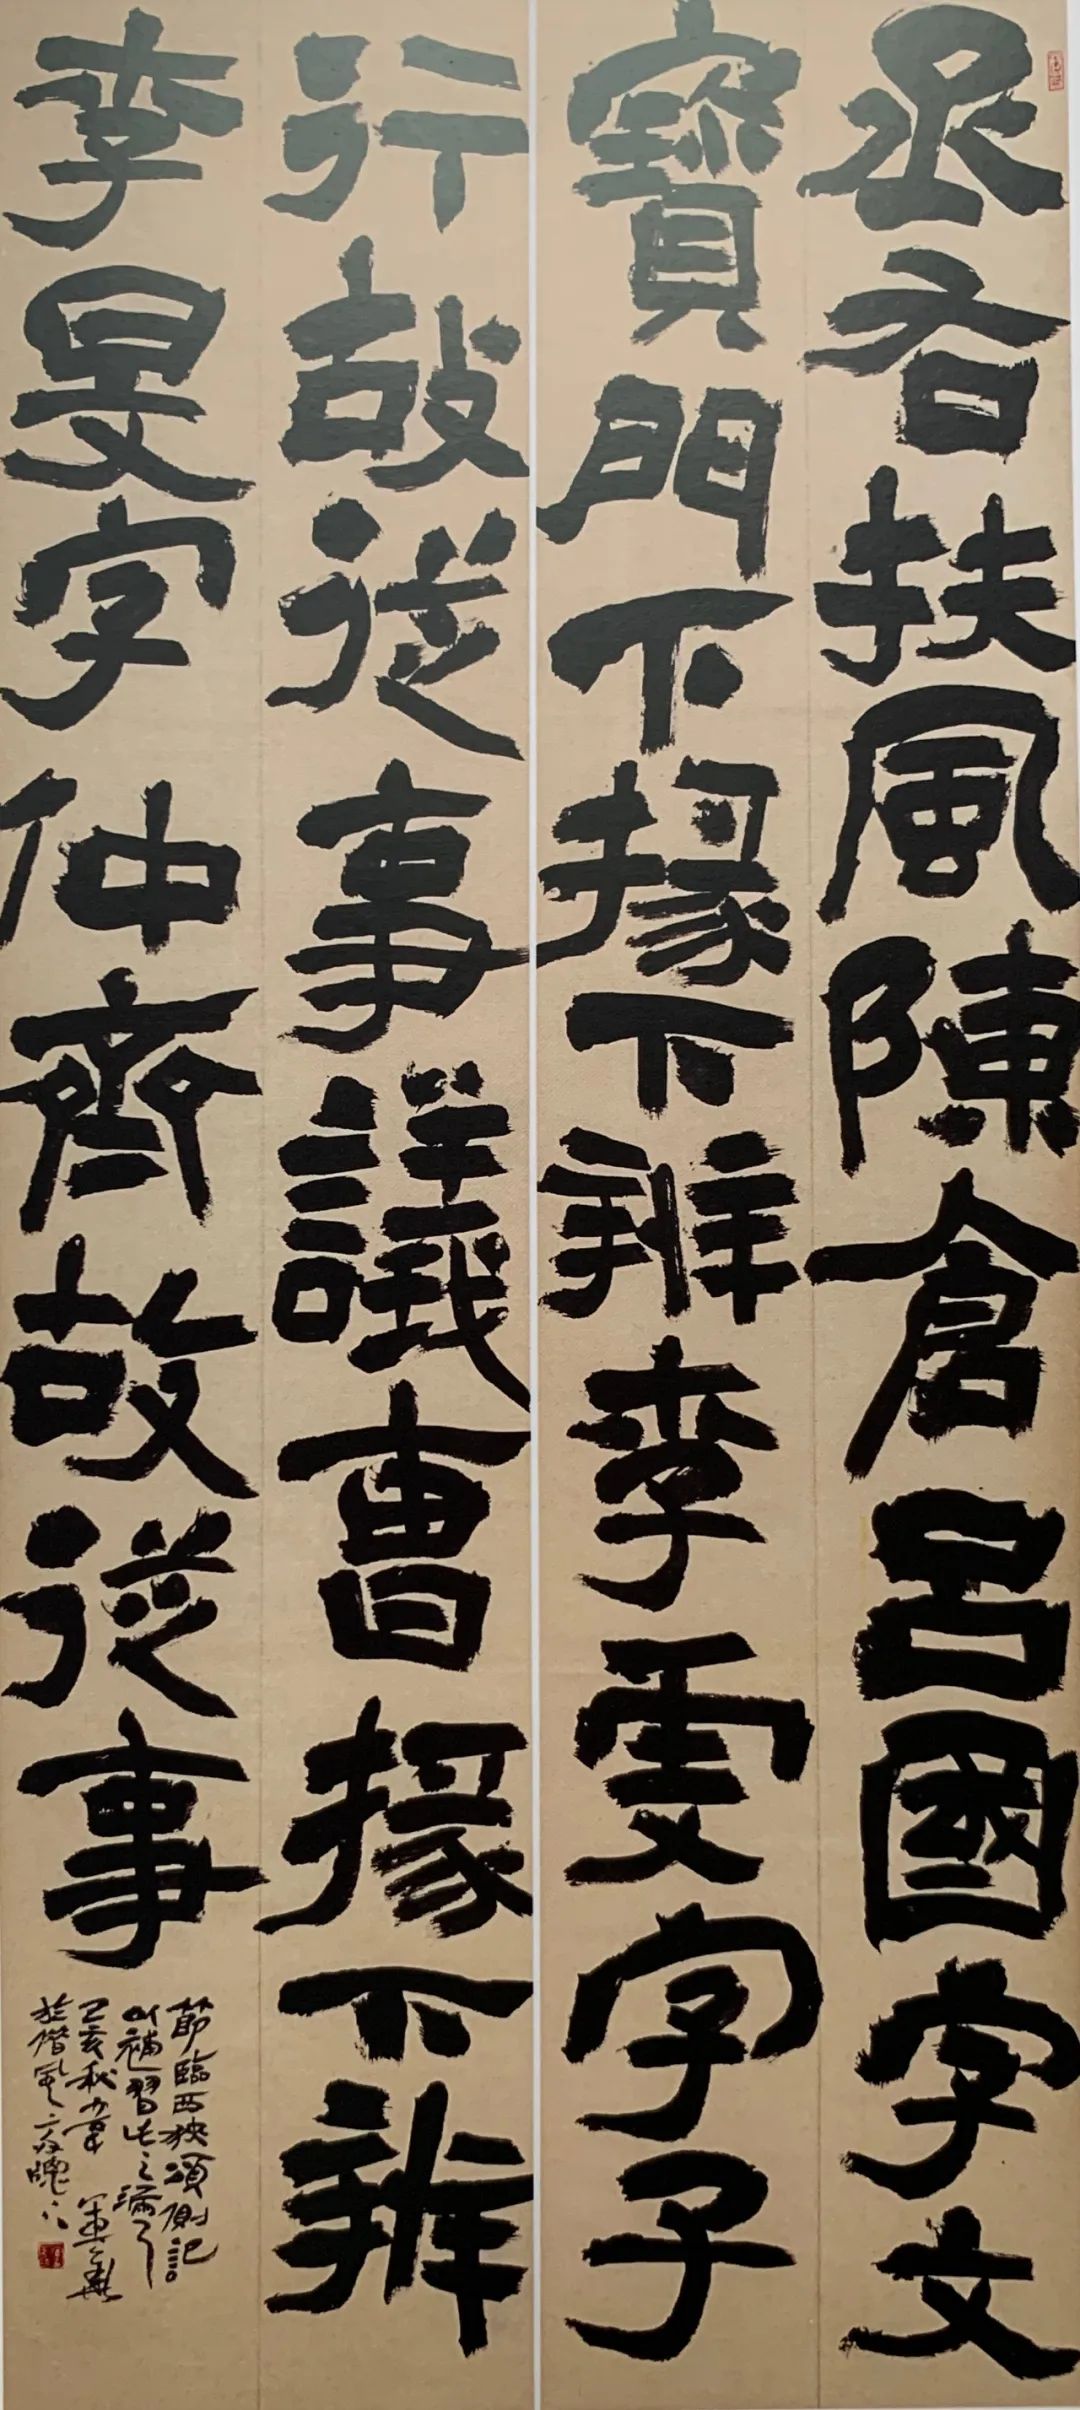 丞右扶風陳倉呂國字文
寶門下掾下辨李旻字子
行故從事議曹掾下辨
李旻字仲齊故從事
節臨西狹頌側記
以補習
己亥秋